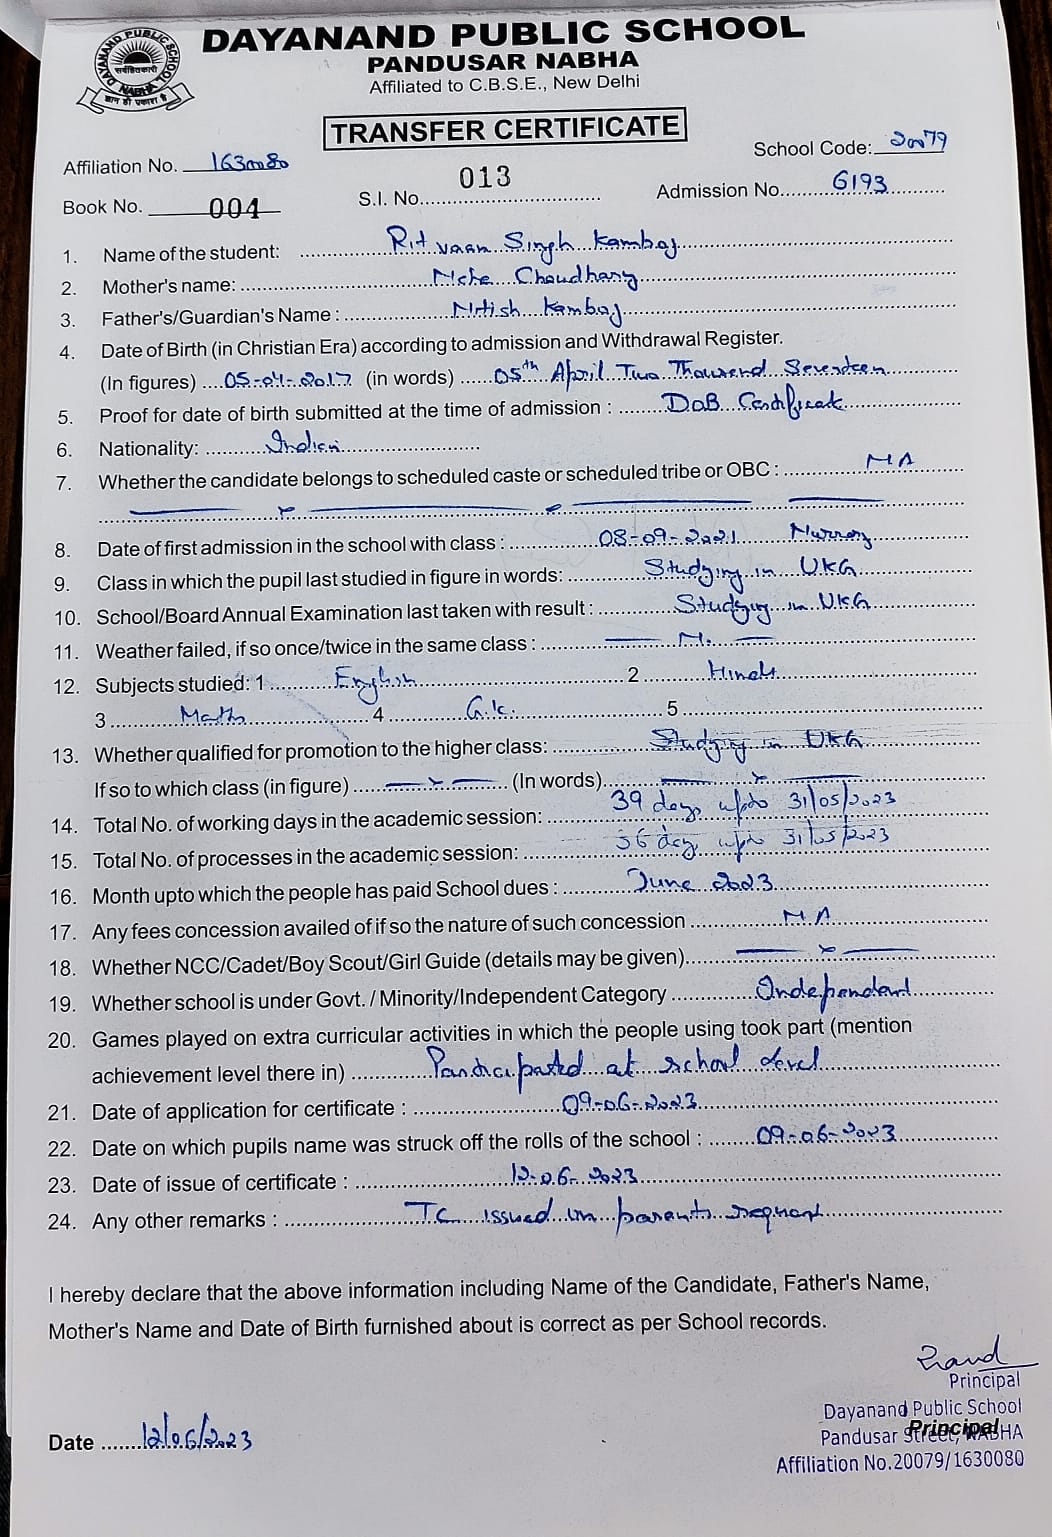 DAYANAND PUBLIC SCHOOL
PANDUSAR NABHA
Affiliated to C.B.S.E., New Delhi
DAYANAND PUBLIC SCHOOL
NABHA
TRANSFER CERTIFICATE
Affiliation No. 1630080
School Code: 20079
Book No. 004
S.I. No. 013
Admission No. 6193
1. Name of the student: Ritvaan Singh Kamboj
2. Mother's name: Choudhary
3. Father's/Guardian's Name : Nitish Kamboj
4. Date of Birth (in Christian Era) according to admission and Withdrawal Register.
(In figures) 05-04-2017 (in words) 05th April Two Thousand Seventeen
5. Proof for date of birth submitted at the time of admission : DoB Certificate
6. Nationality: Indian
7. Whether the candidate belongs to scheduled caste or scheduled tribe or OBC : NA
8. Date of first admission in the school with class : 08-09-2021 Nursery
9. Class in which the pupil last studied in figure in words: Studying in UKG
10. School/Board Annual Examination last taken with result : Studying in UKG
11. Weather failed, if so once/twice in the same class :
12. Subjects studied: 1 English 2 Hindi
3 Maths 4 G.k. 5
13. Whether qualified for promotion to the higher class: Studying in UKG
If so to which class (in figure) (In words)
14. Total No. of working days in the academic session: 39 days upto 31/05/2023
15. Total No. of processes in the academic session: 36 day upto 31/05/2023
16. Month upto which the people has paid School dues : June 2023
17. Any fees concession availed of if so the nature of such concession NA
18. Whether NCC/Cadet/Boy Scout/Girl Guide (details may be given)
19. Whether school is under Govt. / Minority/Independent Category Independent
20. Games played on extra curricular activities in which the people using took part (mention
achievement level there in) Participated at school level
21. Date of application for certificate : 09-06-2023
22. Date on which pupils name was struck off the rolls of the school : 09-06-2023
23. Date of issue of certificate : 12-06-2023
24. Any other remarks : TC issued on parents request
I hereby declare that the above information including Name of the Candidate, Father's Name,
Mother's Name and Date of Birth furnished about is correct as per School records.
Principal
Dayanand Public School
Principal
Pandusar Street, NABHA
Affiliation No.20079/1630080
Date 12/06/2023